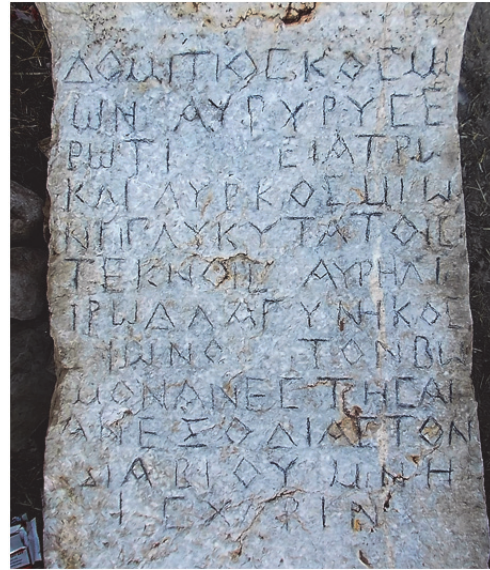 ΔΟΜΙΤΙΟΣ ΚΟΣΜΙ
ΩΝ ΑΥΡΥΡΥΣΕ
ΡΩΤΙ ΕΙΑΤΡΩ
ΚΑΙ ΑΥΡΚΟΣΜΙΩ
ΝΙΓΛΥΚΥΤΑΤΟΙΣ
ΤΕΚΝΟΙΣ ΑΥΡΗΛΙ
ΙΡΩΔΛΑΓΥΝΗΚΟΣ
ΙΩΝΟ ΤΟΝΒΩ
ΜΟΝΑΝΕΣΤΗΣΑΙ
ΑΝΕΞΟΔΙΑΣΤΟΝ
ΔΙΑΒΙΟΥ ΜΝΗ
ΙΣΧΑΡΙΝ